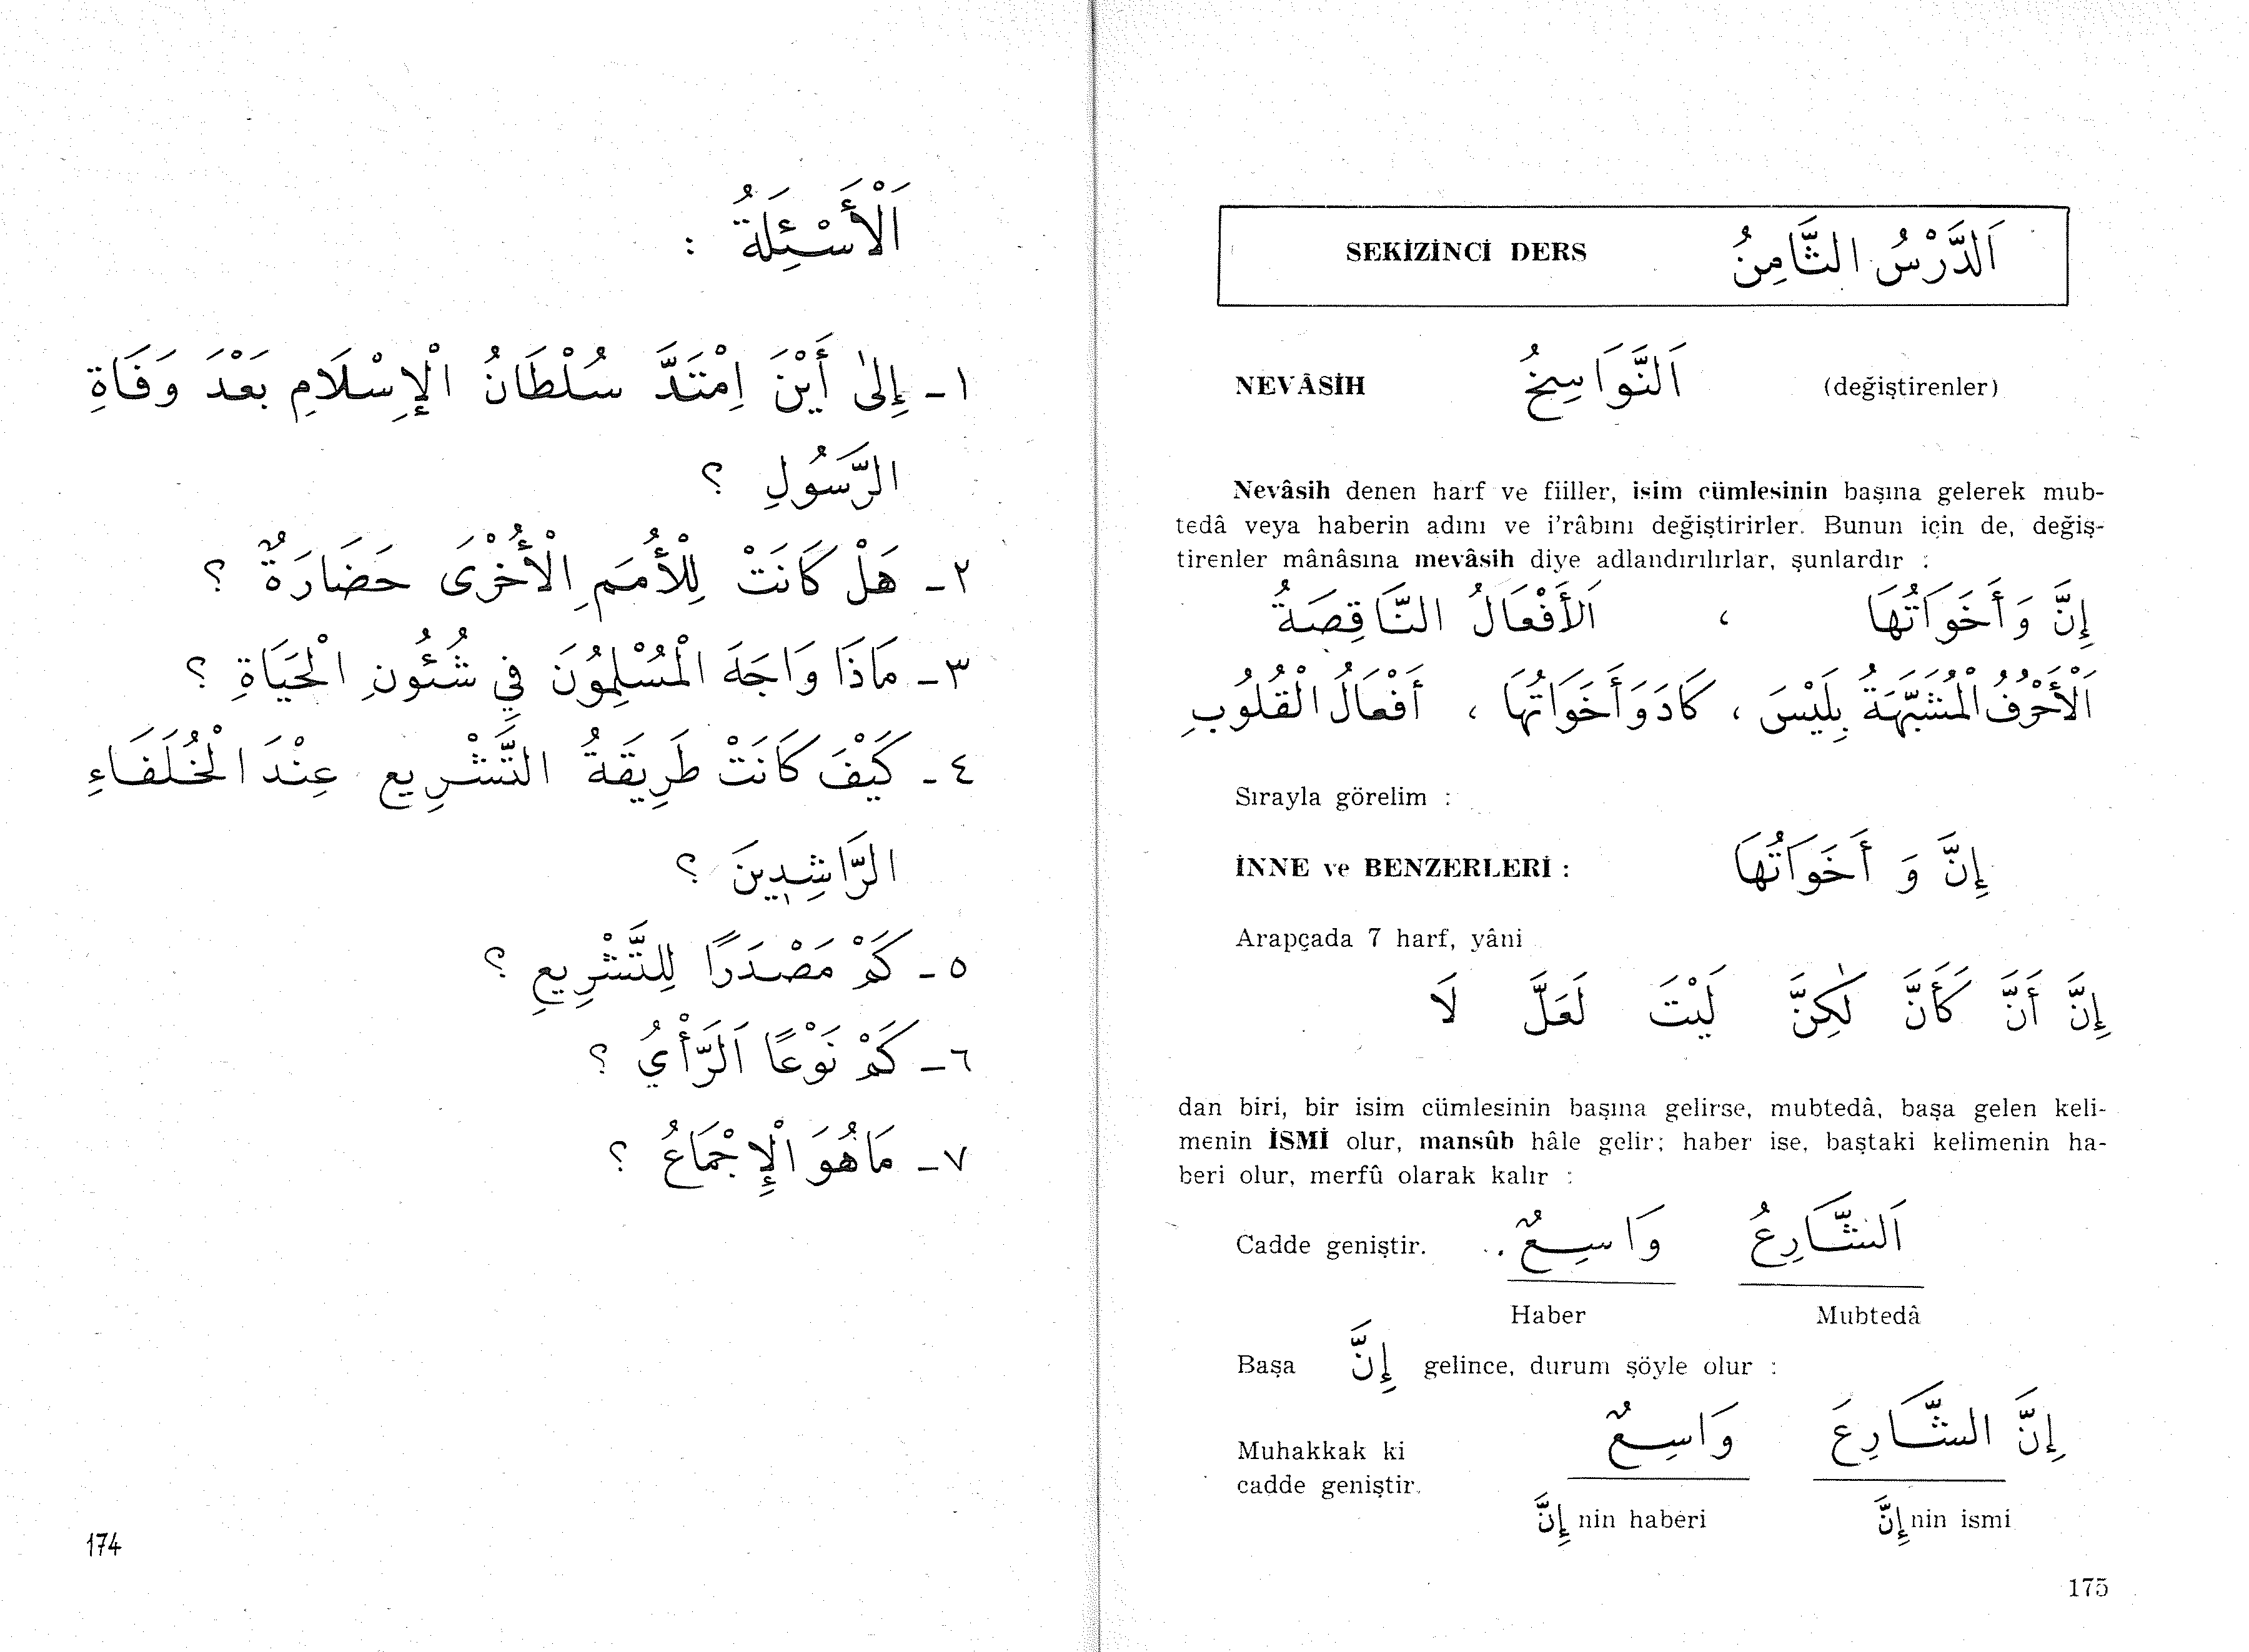 اَلْأَسْئِلَةُ :
١ـ إِلىٰ أَيْنَ اِمْتَدَّ سُلْطَانُ الْإِسْلَامِ بَعْدَ وَفَاةِ
الرَّسُولِ ؟
٢ـ هَلْ كَانَتْ لِلْأُمَمِ الْأُخْرَى حَضَارَةٌ ؟
٣ـ مَاذَا وَاجَهَ الْمُسْلِمُونَ فِي شُئُونِ الْحَيَاةِ ؟
٤ـ كَيْفَ كَانَتْ طَرِيقَةُ التَّشْرِيعِ عِنْدَ الْخُلَفَاءِ
الرَّاشِدِينَ ؟
٥ـ كَمْ مَصْدَرًا لِلتَّشْرِيعِ ؟
٦ـ كَمْ نَوْعًا اَلرَّأْيُ ؟
٧ـ مَاهُوَ الْإِجْمَاعُ ؟
174
SEKİZİNCİ DERS اَلدَّرْسُ الثَّامِنُ
NEVÂSİH اَلنَّوَاسِخُ (değiştirenler)
Nevâsih denen harf ve fiiller, isim cümlesinin başına gelerek mub-
tedâ veya haberin adını ve i'râbını değiştirirler. Bunun için de, değiş-
tirenler mânâsına mevâsih diye adlandırılırlar, şunlardır :
إِنَّ وَأَخَوَاتُهَا ، اَلأَفْعَالُ النَّاقِصَةُ
اَلْأَحْرُفُ الْمُشَبَّهَةُ بِلَيْسَ ، كَادَ وَأَخَوَاتُهَا ، أَفْعَالُ الْقُلُوبِ
Sırayla görelim :
İNNE ve BENZERLERİ : إِنَّ وَ أَخَوَاتُهَا
Arapçada 7 harf, yâni
إِنَّ أَنَّ كَأَنَّ لٰكِنَّ لَيْتَ لَعَلَّ لَا
dan biri, bir isim cümlesinin başına gelirse, mubtedâ, başa gelen keli-
menin İSMİ olur, mansûb hâle gelir; haber ise, baştaki kelimenin ha-
beri olur, merfû olarak kalır :
Cadde geniştir. اَلشَّارِعُ وَاسِعٌ .
Haber Mubtedâ
Başa إِنَّ gelince, durum şöyle olur :
إِنَّ الشَّارِعَ وَاسِعٌ
Muhakkak ki
cadde geniştir.
إِنَّ nin haberi إِنَّ nin ismi
175